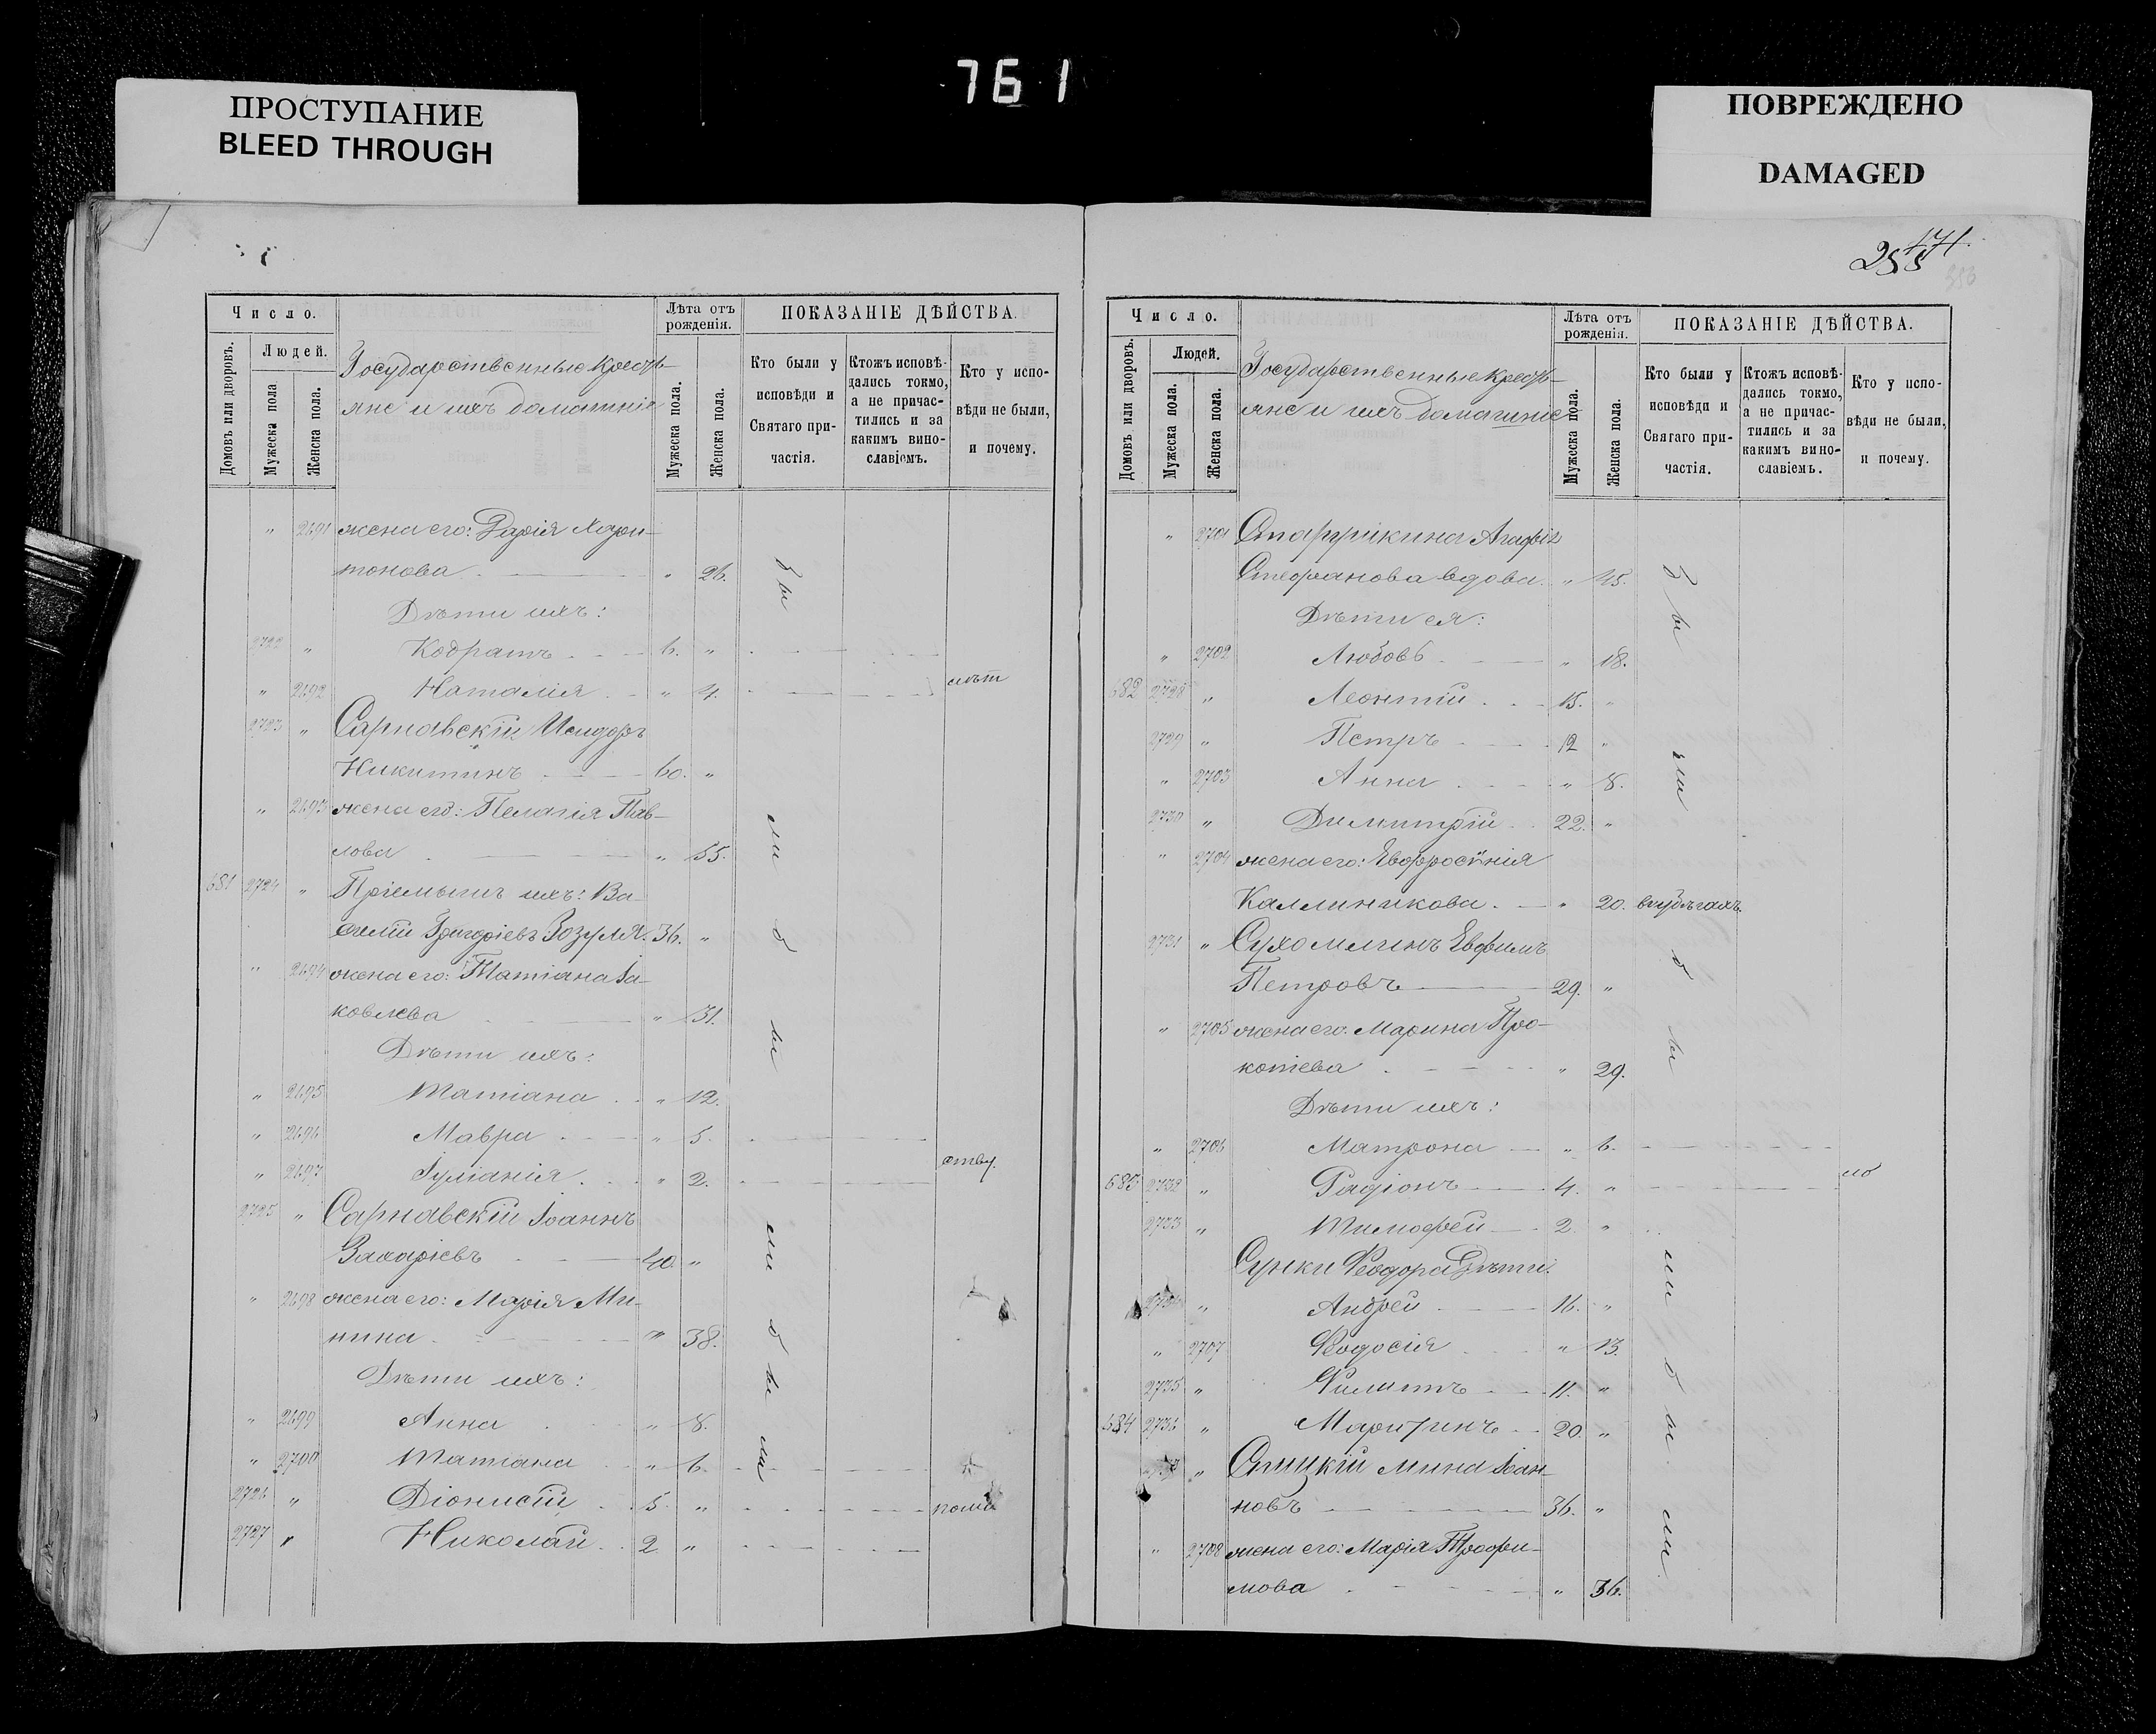 761
ПРОСТУПАНИЕ
BLEED THROUGH
ПОВРЕЖДЕНО
DAMAGED
Число.
Людей.
Домовъ или дворовъ.
Мужеска пола
Женска пола.
Государственные кресть-
яне и ихъ домашніе
Лѣта отъ рожденія.
Мужеска пола.
Женска пола.
ПОКАЗАНІЕ ДѢЙСТВА.
Кто были у исповѣди и Святаго при-частія.
Ктожъ исповѣ-дались токмо, а не причас-тились и за какимъ вино-славіемъ.
Кто у испо-вѣди не были, и почему.
" 2691 жена его: Дарія Хари-
тонова " 26. бы
Дѣти ихъ:
2722 " Кодратъ 6. "
" 2692 Наталія " 4. лѣт
2723 " Сарнавскій Исидоръ
Никитинъ 60. "
" 2693 жена его: Пелагія Пав-
лова " 55. ли
681 2724 " Пріемышъ ихъ: Ва-
силій Григоріевъ Зозуля. 36. " б
" 2694 жена его: Татіана Іа-
ковлева " 31. ы
Дѣти ихъ:
" 2695 Татіана " 12.
" 2696 Мавра " 5.
" 2697 Іуліанія " 2. ству.
2725 " Сарнавскій Іоаннъ
Захаріевъ 40. " ли
" 2698 жена его: Марія Ми-
нина " 38. б
Дѣти ихъ: ы
" 2699 Анна " 8.
" 2700 Татіана " 6. ли
2726 " Діонисій 5. "
2727 " Николай 2 "
255
171.
353
Число.
Людей.
Домовъ или дворовъ.
Мужеска пола.
Женска пола.
Государственные кресть-
яне и ихъ домашніе
Лѣта отъ рожденія.
Мужеска пола.
Женска пола.
ПОКАЗАНІЕ ДѢЙСТВА.
Кто были у исповѣди и Святаго при-частія.
Ктожъ исповѣ-дались токмо, а не причас-тились и за какимъ вино-славіемъ.
Кто у испо-вѣди не были, и почему.
" 2701 Агафія
Стефанова вдова. " 45. б
Дѣти ея: ы
" 2702 Любовь " 18.
682 2728 " Леонтій 15. "
2729 " Петръ 12 "
" 2703 Анна " 8. ли
2730 " Димитрій 22. "
" 2704 жена его: Евфросинія
Каллиникова. " 20.
2731 " Сухомлинъ Евфимъ
Петровъ 29. " б
" 2705 жена его: Марина Про-
копіева " 29. ы
Дѣти ихъ:
" 2706 Матрона " 6.
683 2732 " Радіонъ 4. "
2733 " Тимофей 2 "
Сунки Ѳеодора Дѣти: ли
2734 " Андрей 16. "
" 2707 Ѳеодосія " 13.
2735 " Филиппъ 11. " б
684 2736 " 20. " ы
" Спицкій Мина Іоан-
новъ 36. " ли
" 2708 жена его: Марія Трофи-
мова " 36.